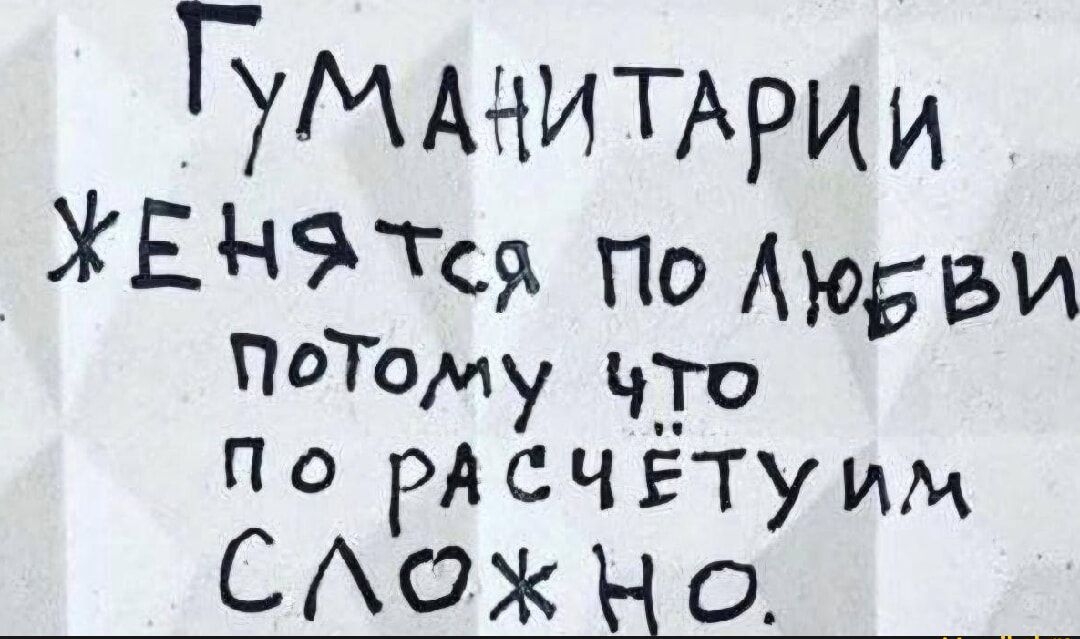 Гуманитарии
женятся по любви
потому что
по расчёту им
сложно.